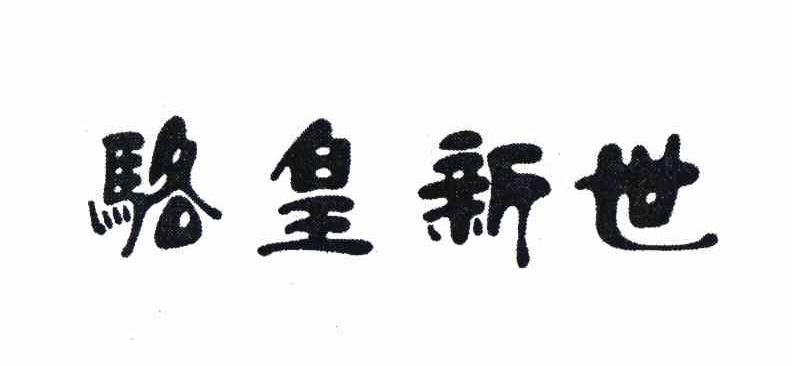 世新皇駱